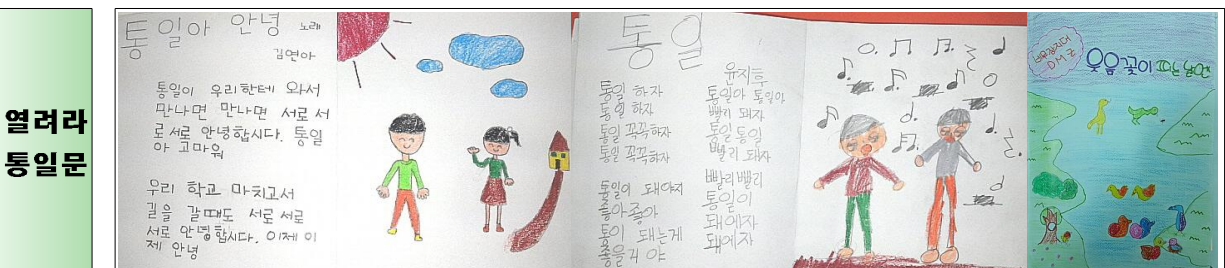 열려라
통일문
통일아 안녕 노래
김연아
통일이 우리한테 와서
만나면 만나면 서로 서
로 서로 안녕합시다. 통일
아 고마워
우리 학교 마치고서
길을 갈때도 서로 서로
서로 안녕합시다. 이제 이
제 안녕
통일
윤지후
통일 하자
통일 하자
통일 꼭꼭하자
통일 꼭꼭하자
통일이 돼야지
좋아 좋아
통이 돼는게
좋을거야
통일아 통일아
빨리 돼자
통일 통일
빨리 돼자
빨리 빨리
통일이
돼에자
돼에자
비무장지대
DMZ
웃음꽃이